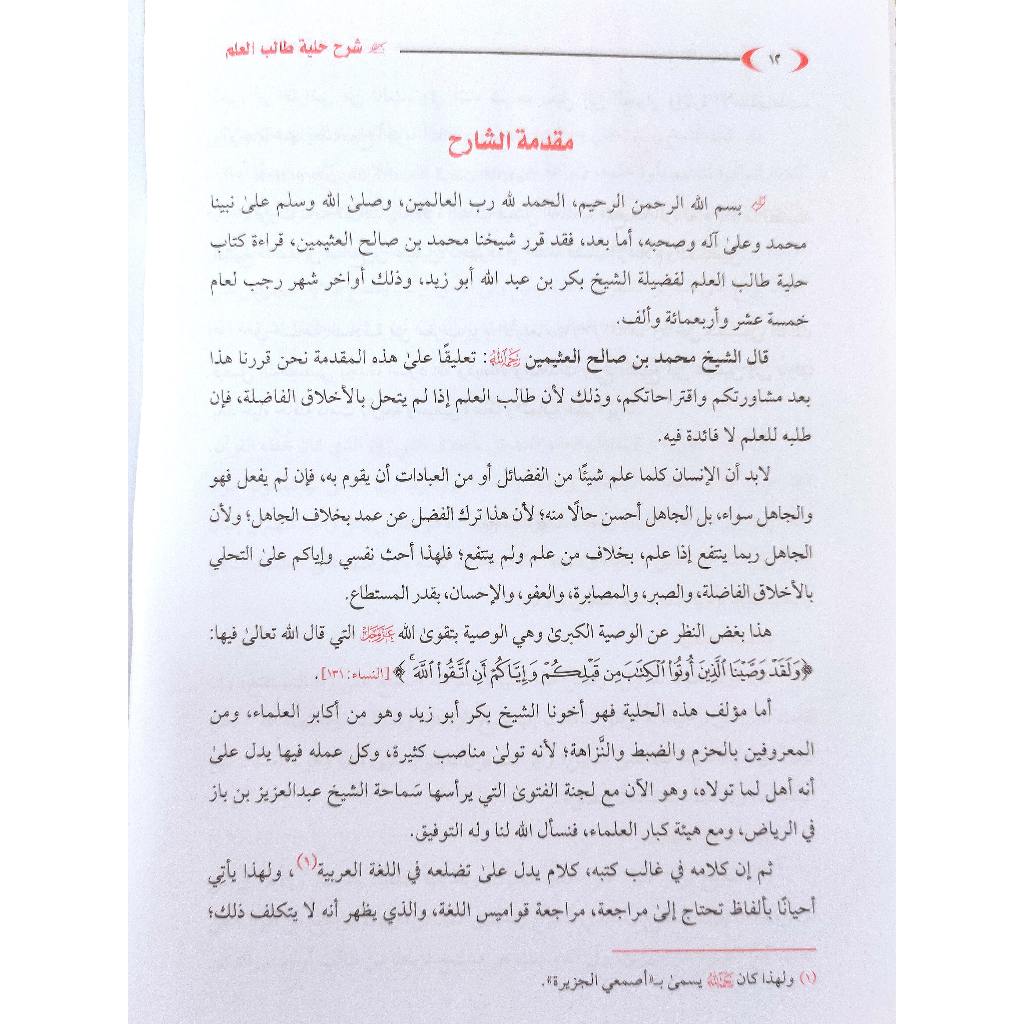 ١٢ شرح حلية طالب العلم
مقدمة الشارح
بسم الله الرحمن الرحيم، الحمد لله رب العالمين، وصلىٰ الله وسلم علىٰ نبينا
محمد وعلىٰ آله وصحبه، أما بعد، فقد قرر شيخنا محمد بن صالح العثيمين، قراءة كتاب
حلية طالب العلم لفضيلة الشيخ بكر بن عبد الله أبو زيد، وذلك أواخر شهر رجب لعام
خمسة عشر وأربعمائة وألف.
قال الشيخ محمد بن صالح العثيمين رحمه الله: تعليقًا علىٰ هذه المقدمة نحن قررنا هذا
بعد مشاورتكم واقتراحاتكم، وذلك لأن طالب العلم إذا لم يتحل بالأخلاق الفاضلة، فإن
طلبه للعلم لا فائدة فيه.
لابد أن الإنسان كلما علم شيئًا من الفضائل أو من العبادات أن يقوم به، فإن لم يفعل فهو
والجاهل سواء، بل الجاهل أحسن حالًا منه؛ لأن هذا ترك الفضل عن عمد بخلاف الجاهل؛ ولأن
الجاهل ربما ينتفع إذا علم، بخلاف من علم ولم ينتفع؛ فلهذا أحث نفسي وإياكم علىٰ التحلي
بالأخلاق الفاضلة، والصبر، والمصابرة، والعفو، والإحسان، بقدر المستطاع.
هذا بغض النظر عن الوصية الكبرىٰ وهي الوصية بتقوىٰ الله عز وجل التي قال الله تعالىٰ فيها:
﴿وَلَقَدْ وَصَّيْنَا ٱلَّذِينَ أُوتُوا۟ ٱلْكِتَٰبَ مِن قَبْلِكُمْ وَإِيَّاكُمْ أَنِ ٱتَّقُوا۟ ٱللَّهَ ۚ﴾ [النساء: ١٣١].
أما مؤلف هذه الحلية فهو أخونا الشيخ بكر أبو زيد وهو من أكابر العلماء، ومن
المعروفين بالحزم والضبط والنَّزاهة؛ لأنه تولىٰ مناصب كثيرة، وكل عمله فيها يدل علىٰ
أنه أهل لما تولاه، وهو الآن مع لجنة الفتوىٰ التي يرأسها سَماحة الشيخ عبدالعزيز بن باز
في الرياض، ومع هيئة كبار العلماء، فنسأل الله لنا وله التوفيق.
ثم إن كلامه في غالب كتبه، كلام يدل علىٰ تضلعه في اللغة العربية(١)، ولهذا يأتِي
أحيانًا بألفاظ تحتاج إلىٰ مراجعة، مراجعة قواميس اللغة، والذي يظهر أنه لا يتكلف ذلك؛
(١) ولهذا كان رحمه الله يسمىٰ بـ«أصمعي الجزيرة».